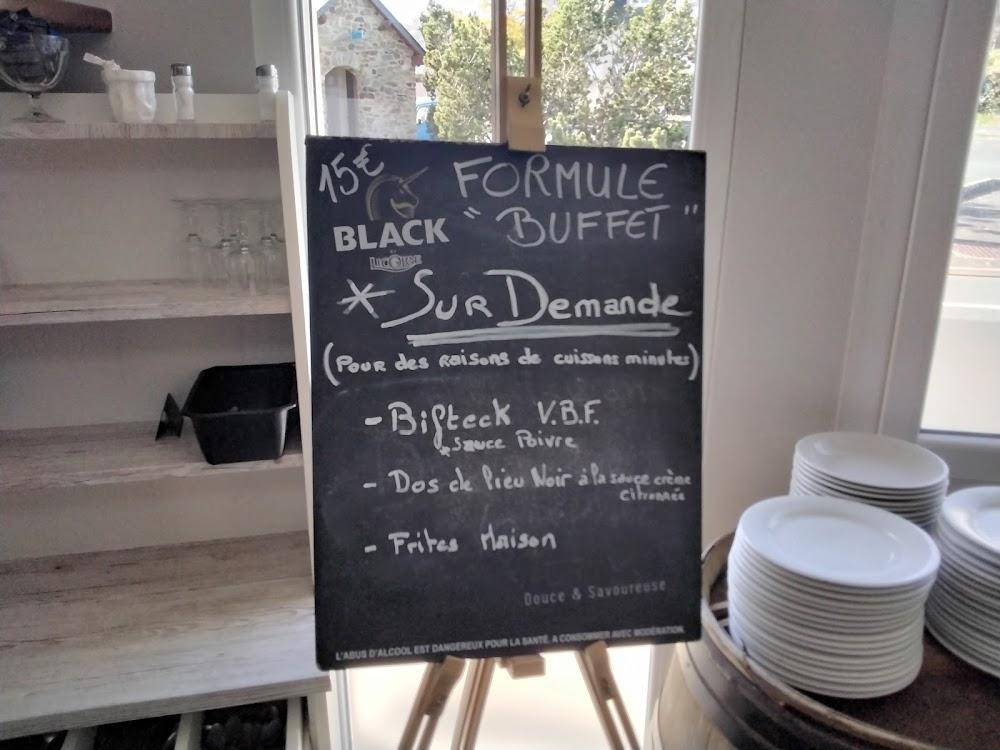 15€
FORMULE
"BUFFET"
BLACK
LICORNE
* SUR Demande
(Pour des raisons de cuissons minutes)
- Bifteck V.B.F.
sauce Poivre
- Dos de lieu Noir à la sauce crème
citronnée
- Frites Maison
Douce & Savoureuse
L'ABUS D'ALCOOL EST DANGEREUX POUR LA SANTÉ, A CONSOMMER AVEC MODÉRATION.